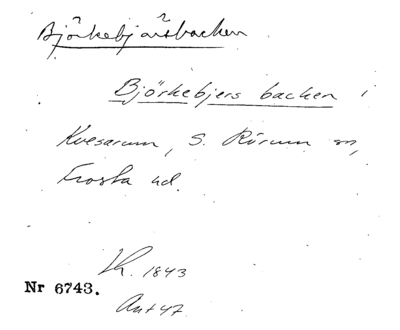 Björkebjärsbacken
Björkebjers backen i
Kvesarum, S. Rörum sn,
Frosta hd.
Lk. 1843
Nr 6743.
Ant 47